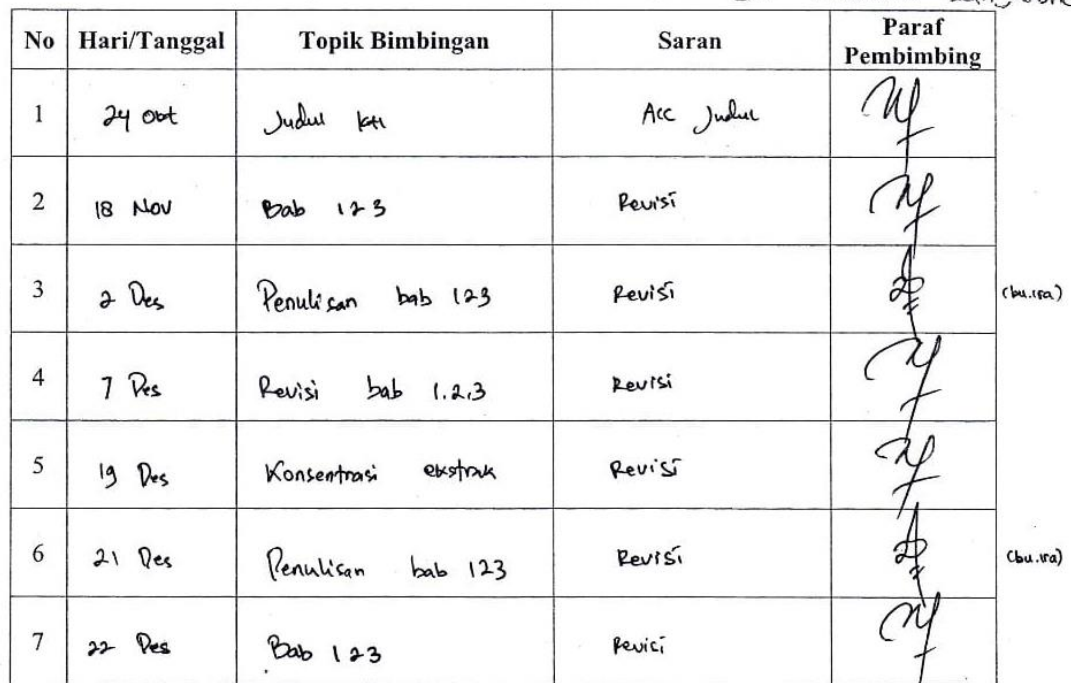 No Hari/Tanggal Topik Bimbingan Saran Paraf Pembimbing
1 24 Okt Judul KTI Acc Judul
2 18 Nov Bab 1 2 3 Revisi
3 2 Des Penulisan bab 123 Revisi (bu.ira)
4 7 Des Revisi bab 1.2.3 Revisi
5 19 Des Konsentrasi ekstrak Revisi
6 21 Des Penulisan bab 123 Revisi (bu.ira)
7 22 Des Bab 1 2 3 Revisi